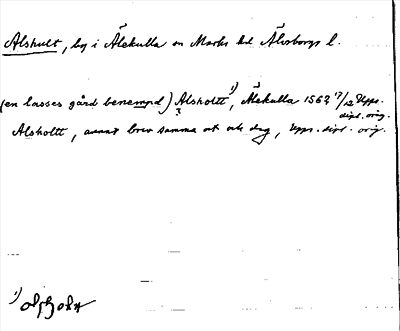 Alshult, by i Älekulla sn Marks hd Älvsborgs l.
(en lasses gård benempd) Alsholtt¹⁾, Älekulla 1562 7/12 Upps. dipl. orig.
Alsholtt, annat brev samma ort och dag, Upps. dipl. orig.
1)